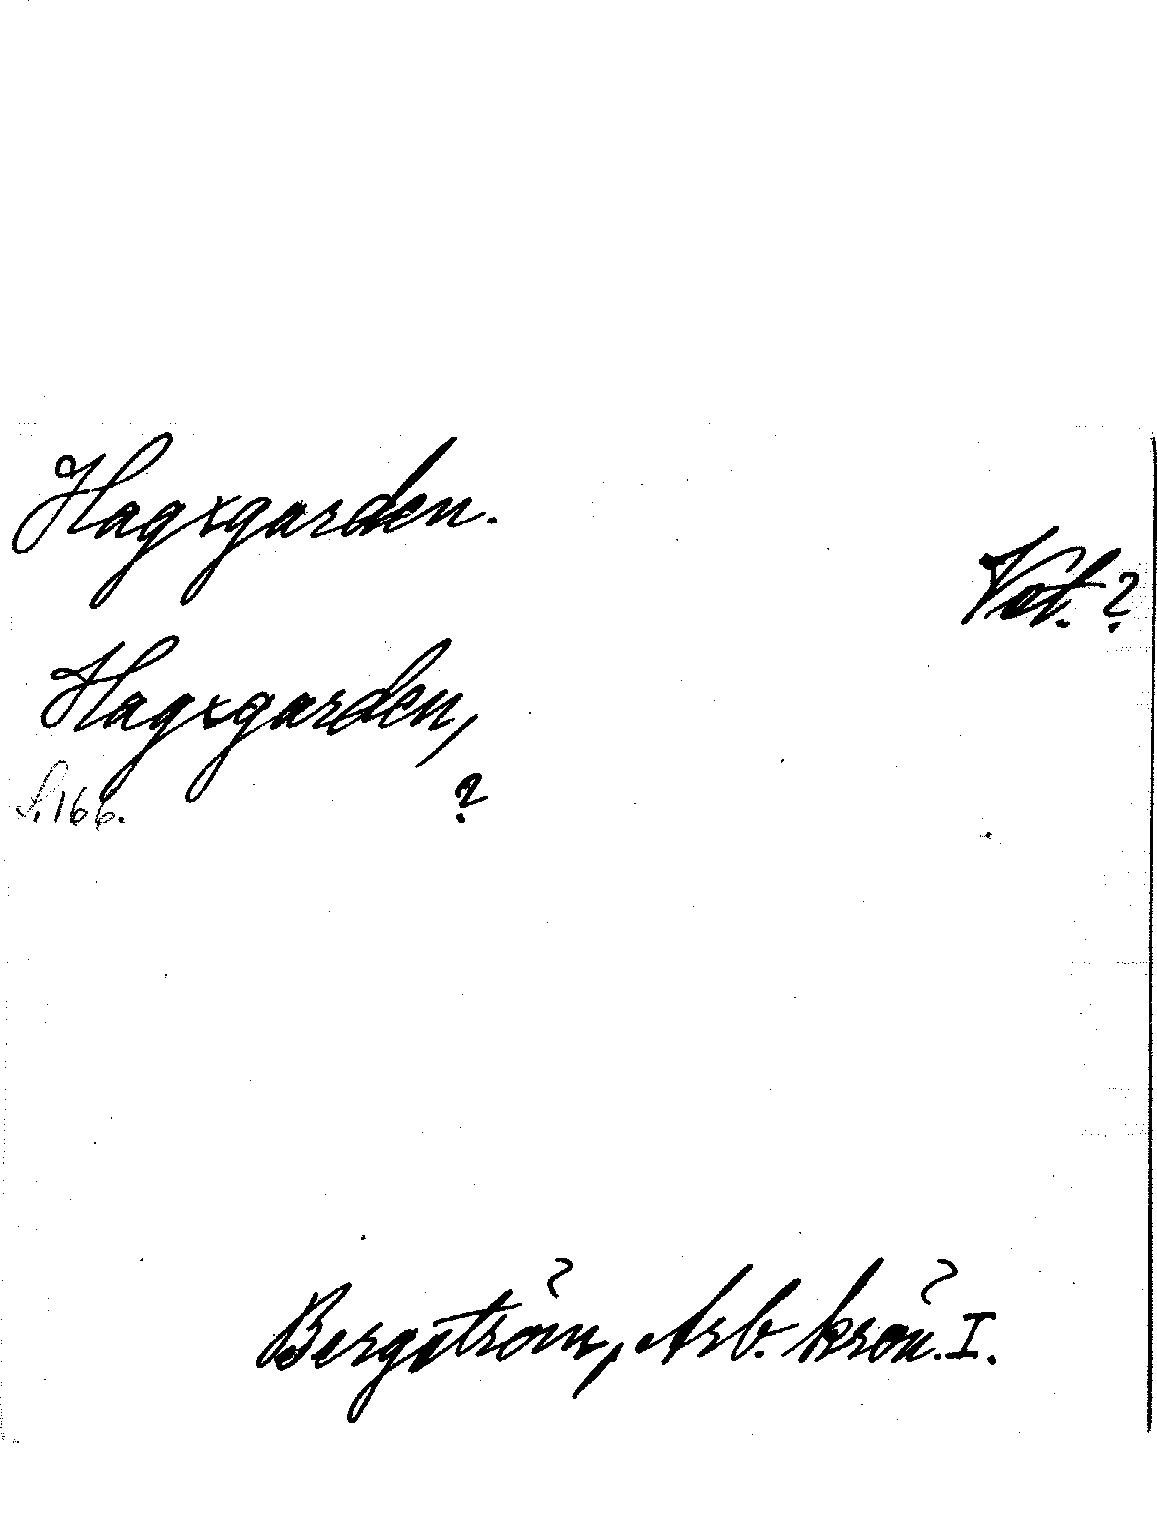 Hagxgarden.
Vot. ?
Hagxgarden,
S. 166. ?
Bergström, Arb. krön. I.